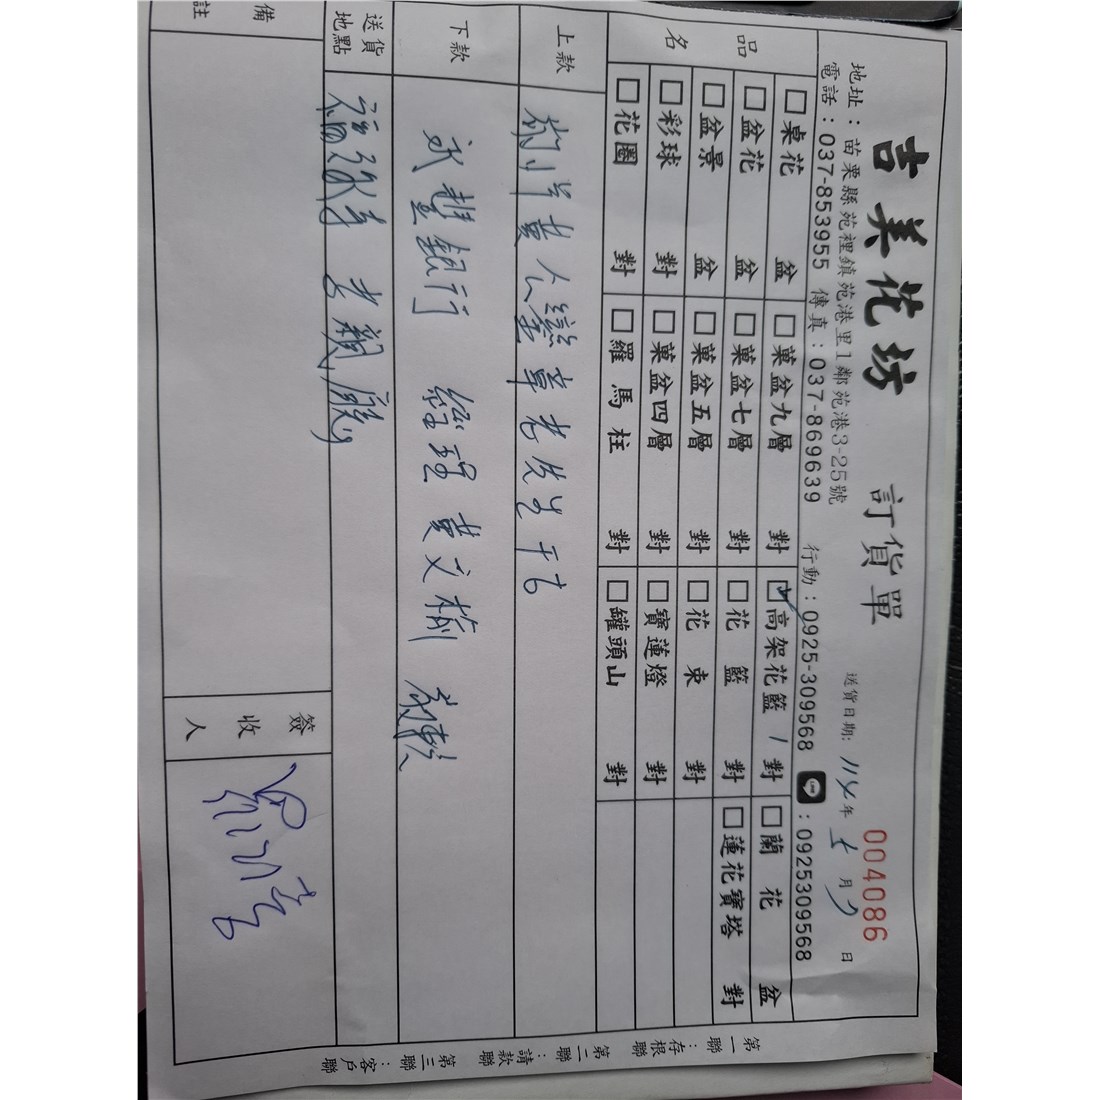 吉美花坊 訂貨單
004086
地址：苗栗縣苑裡鎮苑港里1鄰苑港3-25號
送貨日期: 114年 七月 9日
電話：037-853955 傳真：037-869639 行動：0925-309568 LINE：0925309568
品名
□桌花 盆 □菓盆九層 對 ☑高架花籃 1 對 □蘭花 盆
□盆花 盆 □菓盆七層 對 □花籃 對 □蓮花寶塔 對
□盆景 盆 □菓盆五層 對 □花束 對
□彩球 對 □菓盆四層 對 □寶蓮燈 對
□花圈 對 □羅馬柱 對 □罐頭山 對
上款 黃公 章老先生千古
下款 永豐銀行 經理 黃文榆 敬輓
送貨地點 福 孝親廳
備註
簽收人
第一聯：存根聯 第二聯：請款聯 第三聯：客戶聯